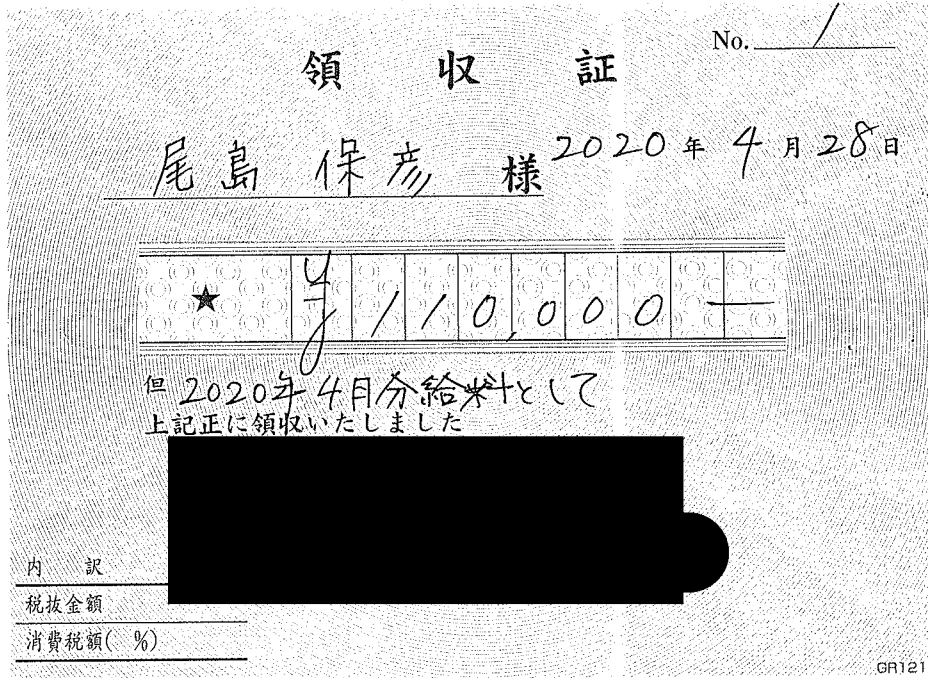 No. 1
領収証
尾島 保彦 様
2020年4月28日
★ ¥110,000―
但 2020年4月分給料として
上記正に領収いたしました
内訳
税抜金額
消費税額( %)
GR121